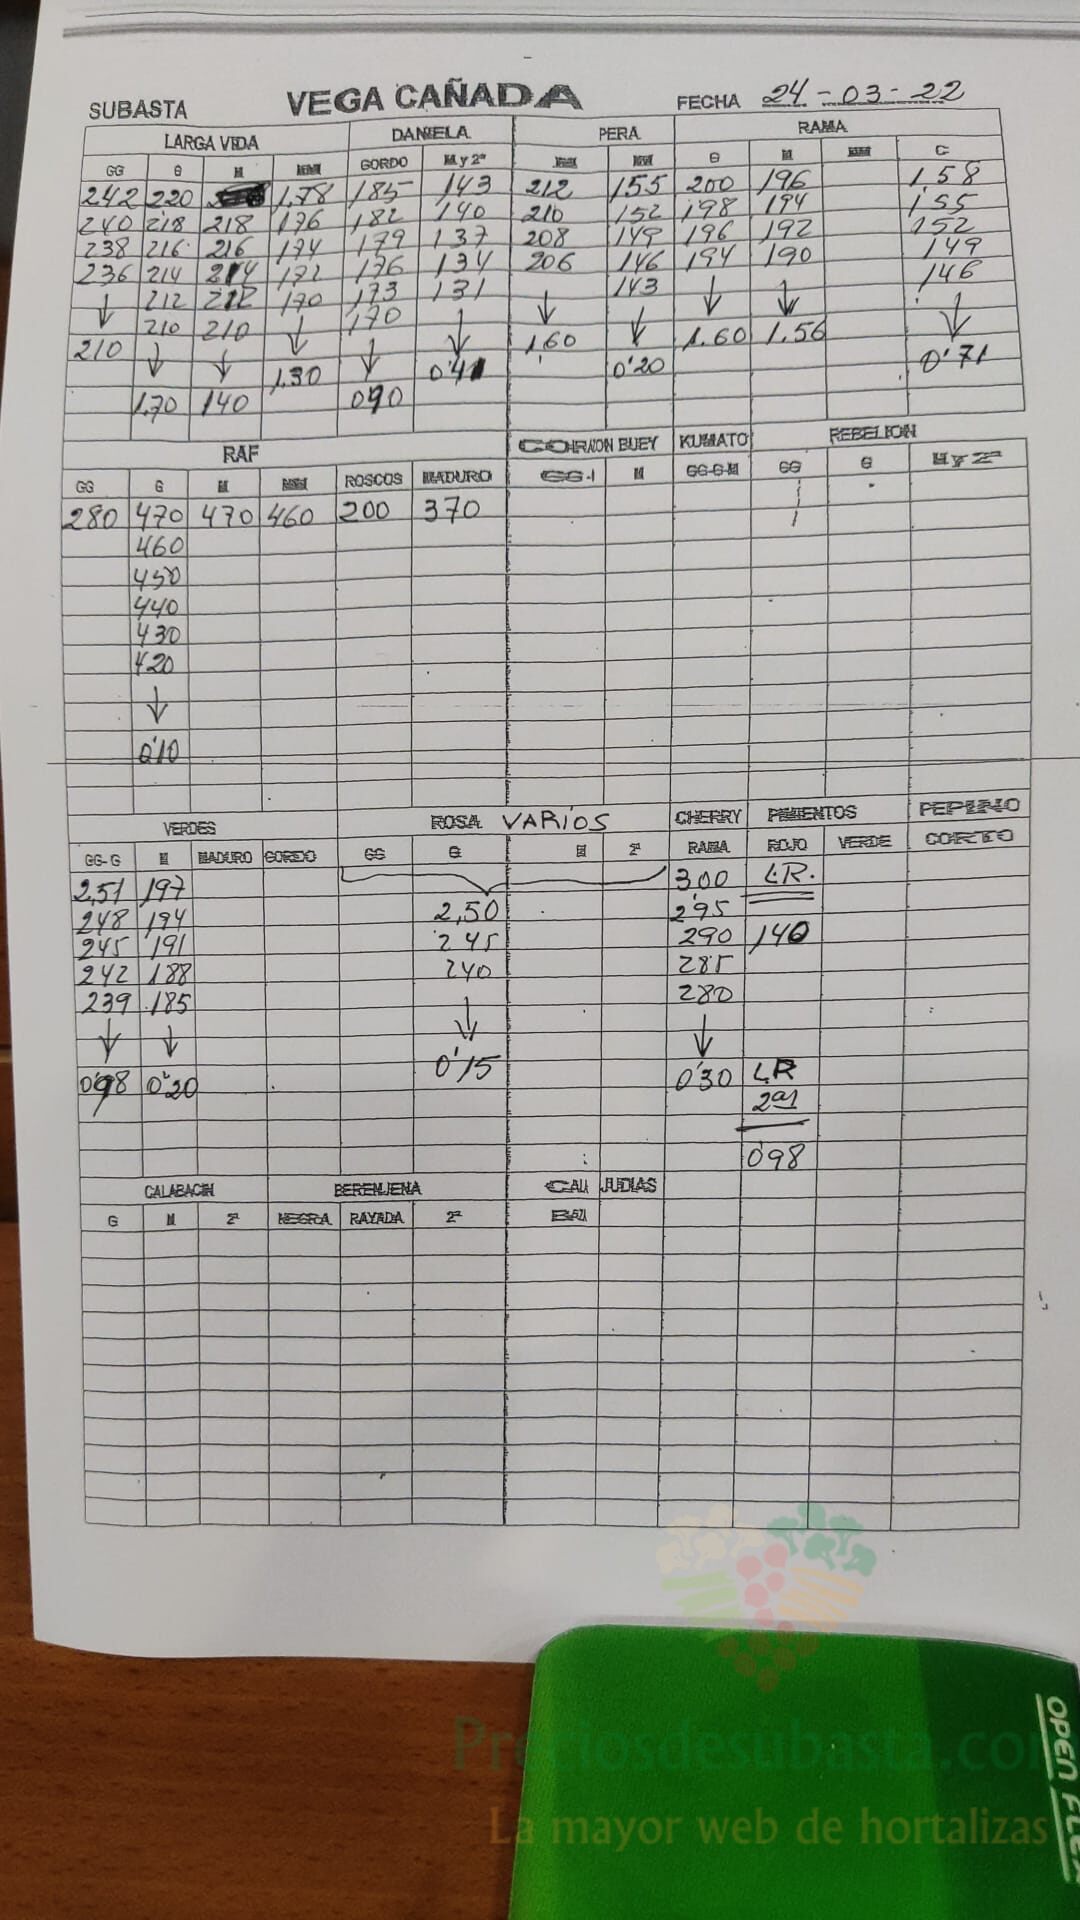 SUBASTA VEGA CAÑADA FECHA 24-03-22
LARGA VIDA DANIELA PERA RAMA
GG G M MM GORDO M y 2ª G M MM C
242 220 1,78 185 143 212 155 200 196 1,58
240 218 218 176 182 140 210 152 198 194 155
238 216 216 174 179 137 208 149 196 192 152
236 214 214 172 176 134 206 146 194 190 149
↓ 212 212 170 173 131 ↓ 143 ↓ ↓ 146
210 210 ↓ 170 ↓ ↓ ↓
210 ↓ ↓ 1,30 ↓ 0'41 1,60 0'20 1.60 1.56 0'71
1,70 140 090
RAF CORAZON BUEY KUMATO REBELION
GG G M MM ROSCOS MADURO GG-G M GG-G-M GG G M y 2ª
280 470 470 460 200 370
460
450
440
430
420
↓
0'10
VERDES ROSA VARIOS CHERRY PIMIENTOS PEPINO
GG-G M MADURO GORDO GG G M 2ª RAMA ROJO VERDE CORTO
2,51 197 300 L.R.
248 194 2,50 2'95
245 191 2 45 290 140
242 188 240 285
239 185 280
↓ ↓ ↓ ↓
0'98 0'20 0'15 0'30 L.R
2as
098
CALABACIN BERENJENA CALA JUDIAS
G M 2ª NEGRA RAYADA 2ª BAZA
Preciosdesubasta.com
La mayor web de hortalizas
OPEN FLEX